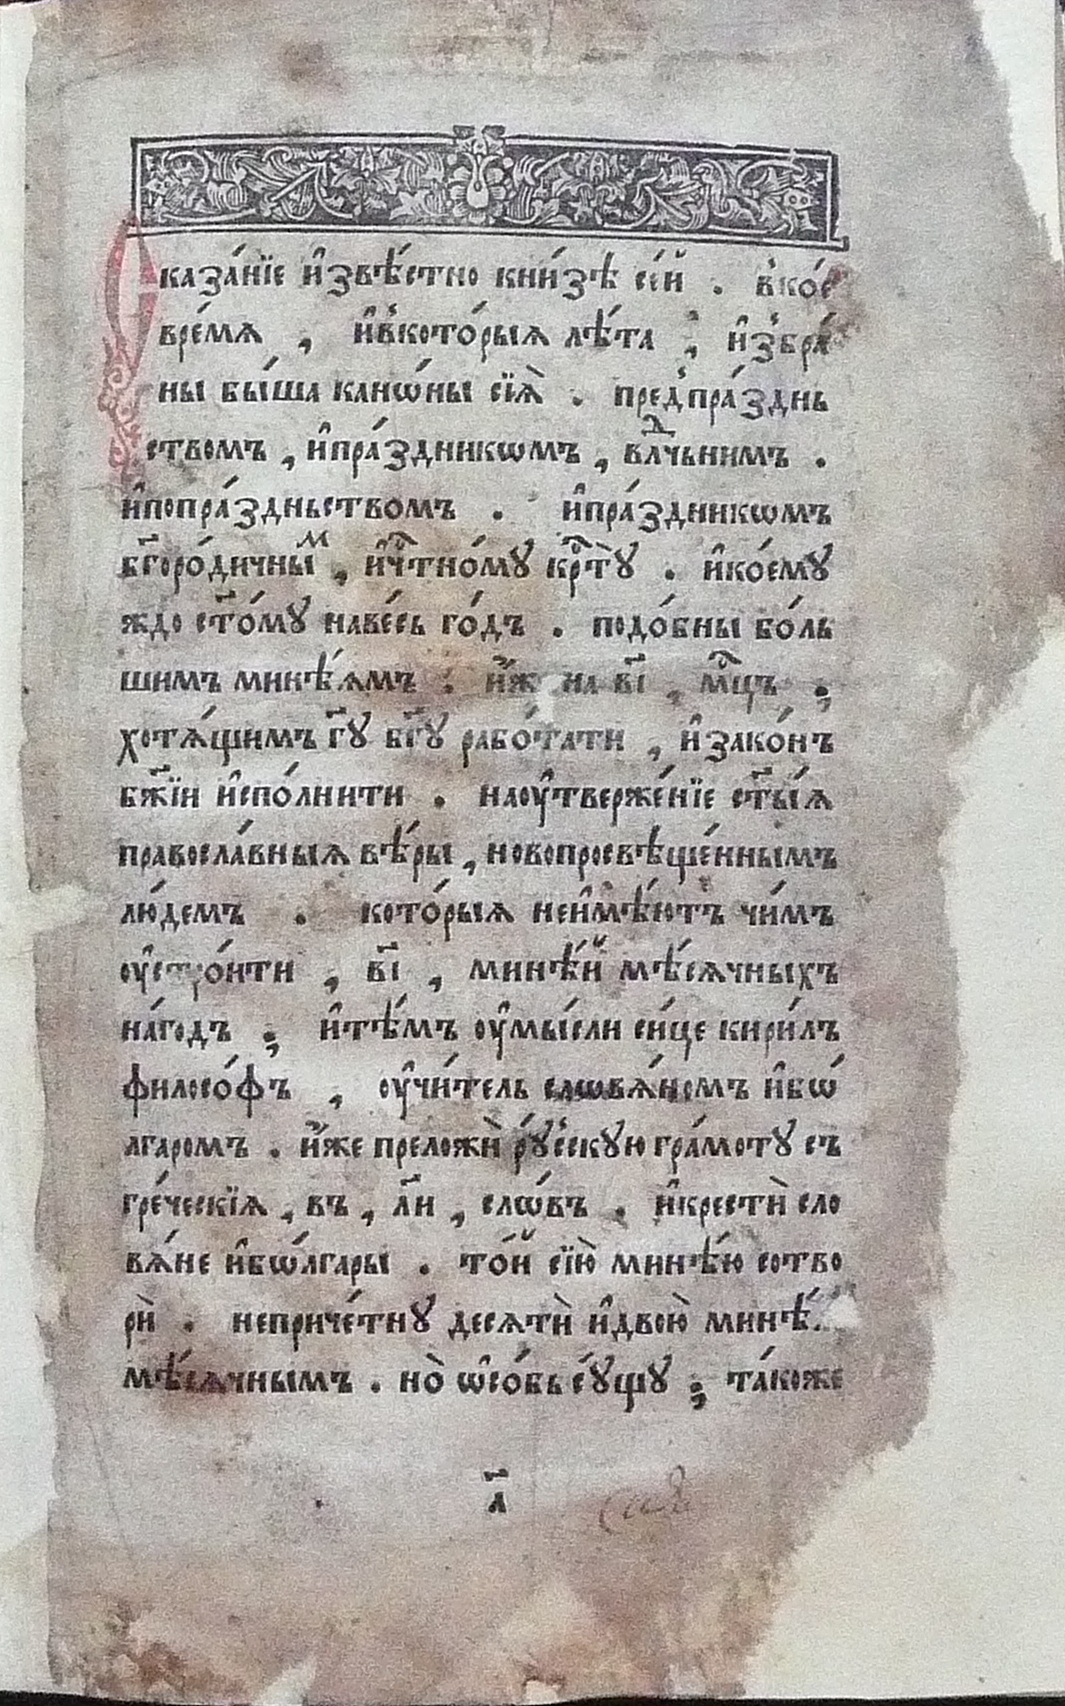 Сказа́нїе и҆звѣ́стно кни́зѣ се́й . в̾ко́е
вре́мѧ , и҆в̾кото́рыѧ лѣ́та ; и҆з̾бра́
ны бы́ша канѡ́ны сїѧ̀ . пред̾пра́зднь
ствомъ , и҆пра́здникѡмъ , влⷣчьнимъ .
и҆попра́здньствомъ . и҆пра́здникѡмъ
бг҃оро́дичныⷨ , и҆чⷭ҇тно́мꙋ крⷭ҇тꙋ̀ . и҆ко́емꙋ
ждо ст҃о́мꙋ наве́сь го́дъ . подо́бны бо́ль
шимъ минѣ́ѧмъ . и҆́ж на в҃і , мⷭ҇цъ ;
хотѧ́щимъ гꙋ҃ бг҃ꙋ рабо́тати , и҆зако́нъ
бж҃їи и҆спо́лнити . наоу҆твержє́нїе ст҃ы́ѧ
правосла́вныѧ вѣ́ры , новопросвѣще́ннымъ
лю́демъ . кото́рыѧ неи҆мѣ́ютъ чи́мъ
оу҆стро́ити , в҃і , минѣ́й мѣ́сѧчныхъ
на́годъ ; и҆тѣ́мъ оу҆мы́сли си́це кири́лъ
филосо́фъ , оу҆чи́тель слѡвѧ́номъ и҆бѡ́
лгаромъ . и҆́же преложѝ рꙋ́сскую гра́мотꙋ съ
гре́ческїѧ , въ , л҃и , слѡ́въ . и҆крестѝ сло
вѧ́не и҆бѡ́лгары . то́й сїю̀ минѣ́ю сотво
рѝ . неприче́тнꙋ десѧтѝ и҆двою̀ минѣ́
мѣ́сѧчнымъ . но̀ ѡ҆со́бь сꙋ́щꙋ ; та́коже
а҃